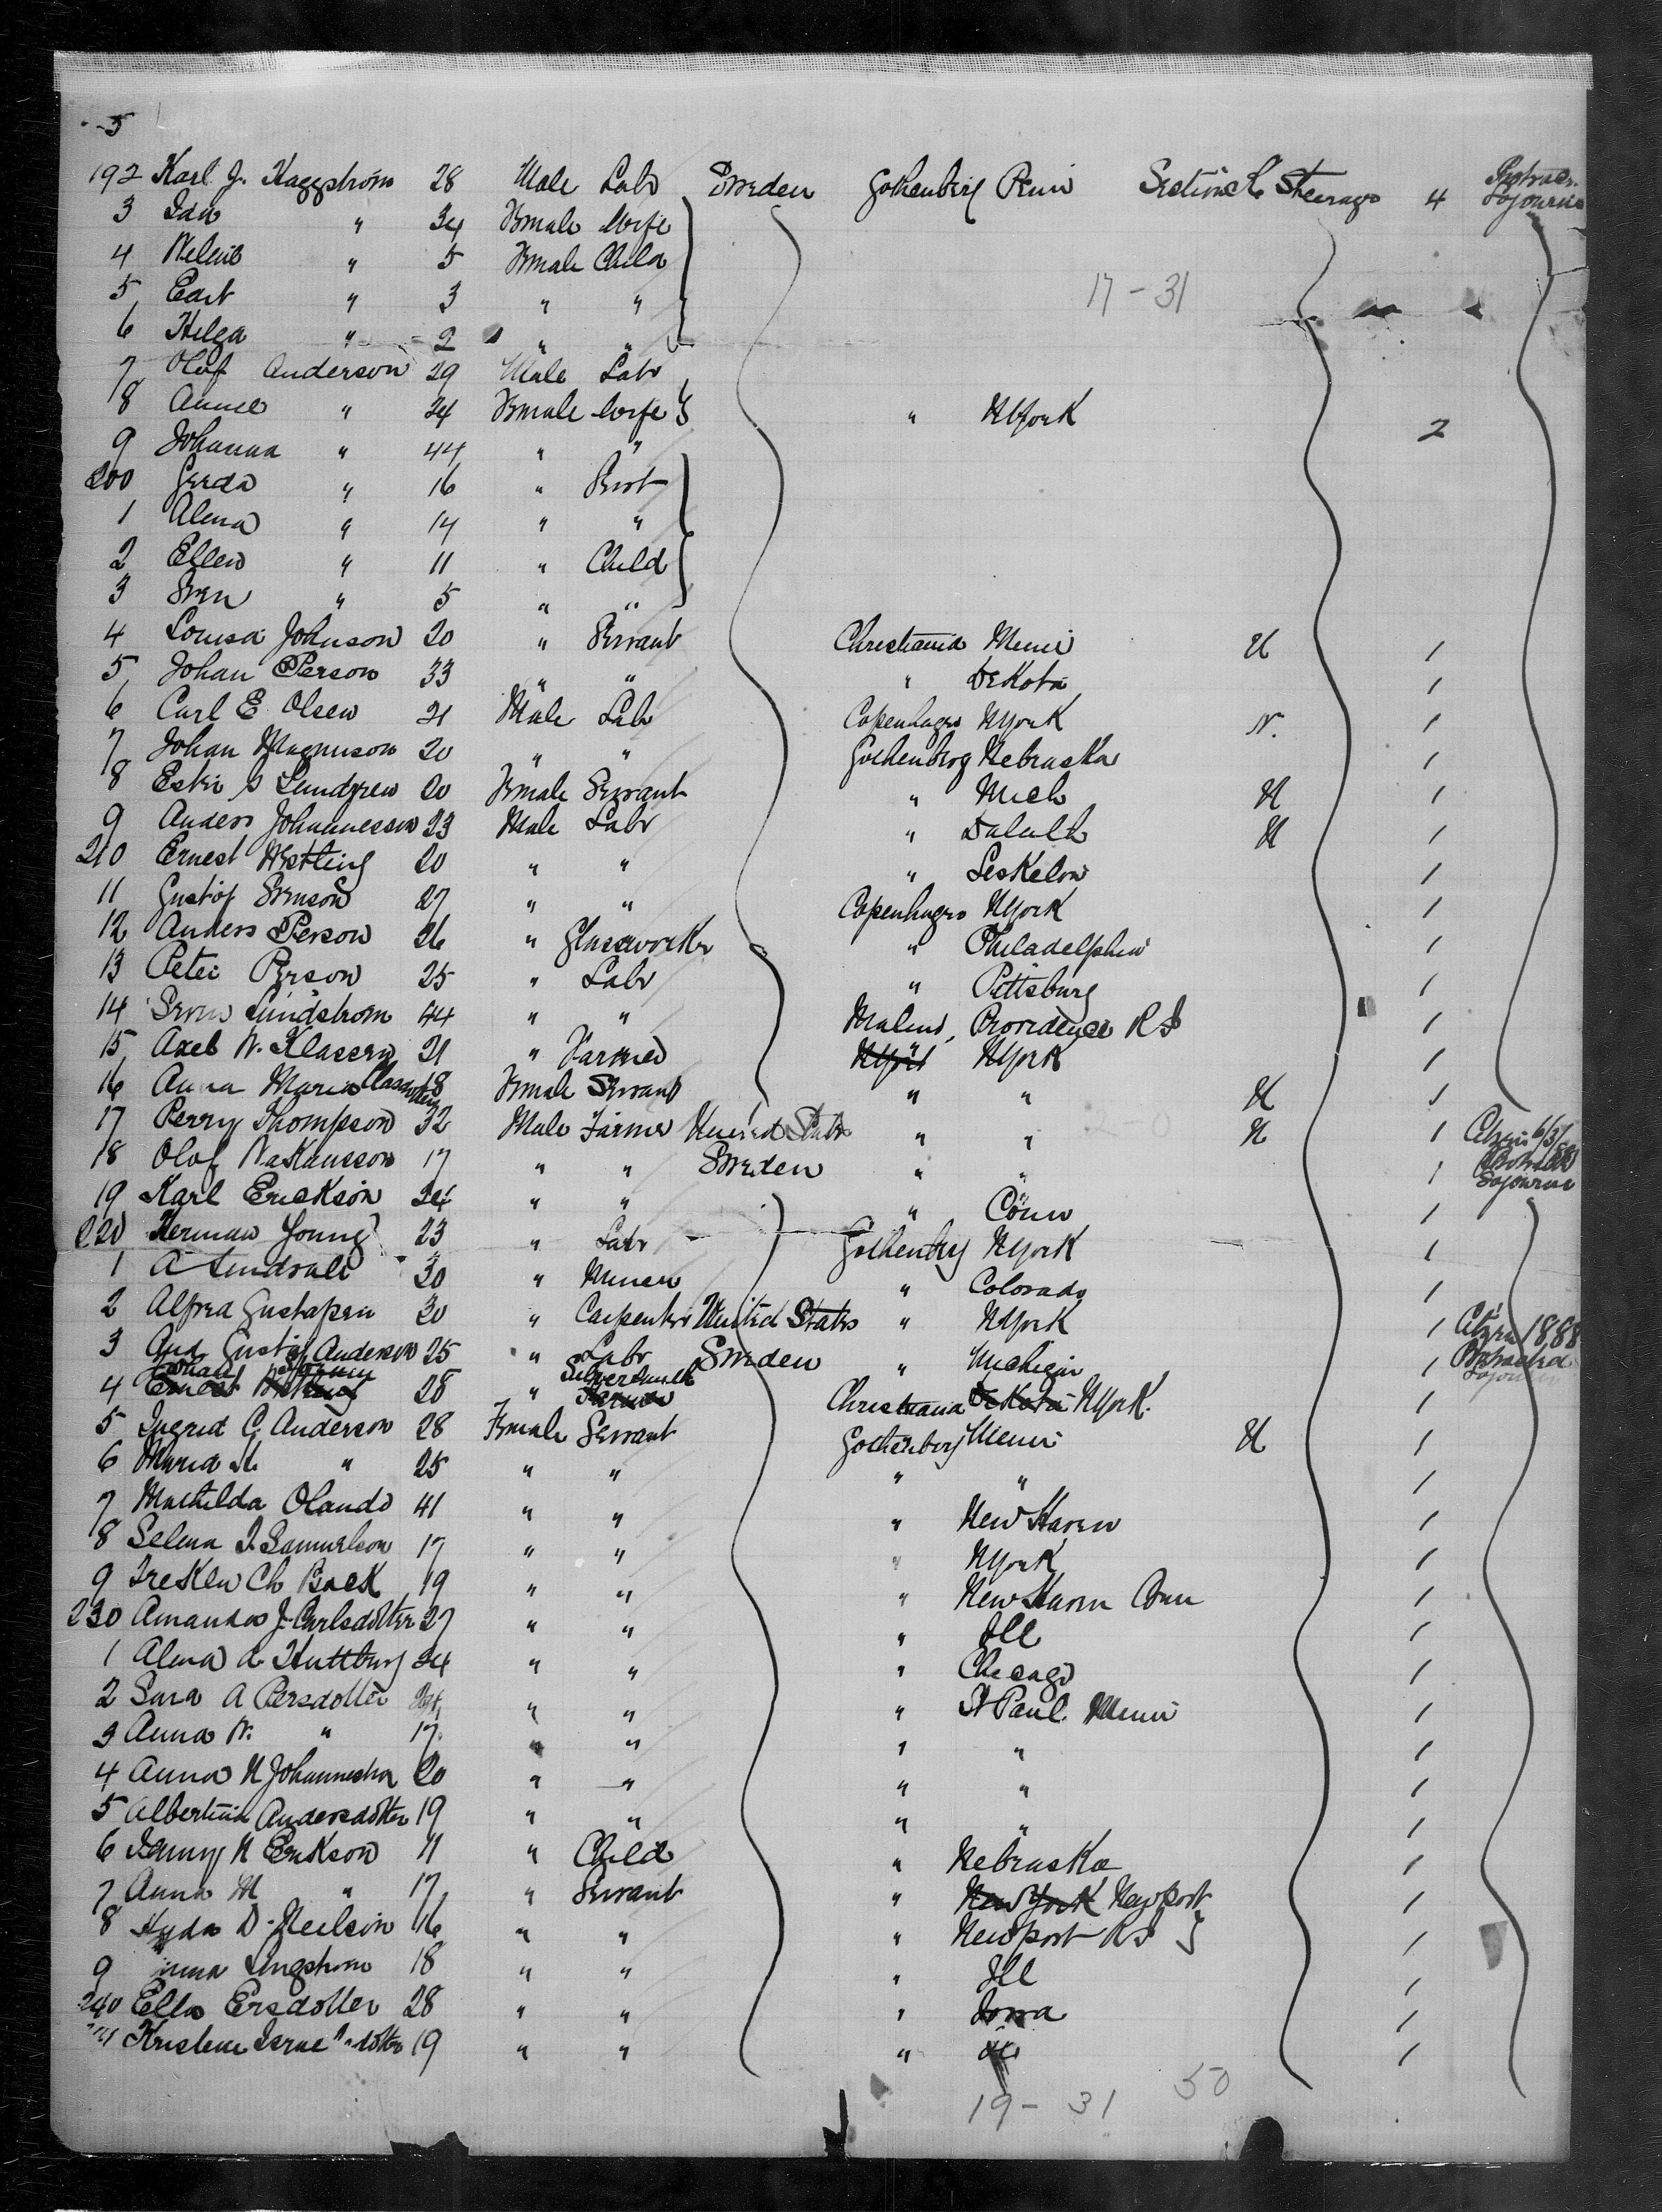 5
192 Karl J. Haggstrom 28 Male Labr Sweden Gothenberg Penn Section Steerage 4 Protrac. Sojourn
3 Ida " 34 Female Wife
4 " 5 Female Child
5 " 3 " " 17-31
6 Helga " 2 " "
7 Olof Anderson 29 Male Labr
8 Annie " 24 Female Wife " NYork 2
9 Johanna " 44 " "
200 Gerda " 16 "
1 Alma " 14 " "
2 Ellen " 11 " Child
3 Sven " 5 " "
4 Louisa Johnson 20 " Servant Christiania Minn 1
5 Johan Person 33 " " " DeKota 1
6 Carl E Olsen 21 Male Labr Copenhagen NYork N. 1
7 Johan Magnuson 20 " " Gothenberg Nebraska 1
8 Lundgren 20 Female Servant " Mich 1
9 Anders Johannesson 23 Male Labr " Duluth 1
210 Ernest Westling 20 " " " 1
11 Gustof Svenson 27 " " Copenhagen NYork 1
12 Anders Person 26 " Glassworker " Philadelphia 1
13 Peter Person 25 " Labr " Pittsburg 1
14 Lindstrom 44 " " Malmo, Providence R I 1
15 Axel W. Klassen 21 " Farmer NYork NYork 1
16 Anna Maria 18 Female Servant " " 1
17 Perry Thompson 32 Male Farmer United States " " 1 Citizen
18 Olof Hakansson 17 " " Sweden " " 1 Sojourn
19 Karl Erickson 24 " " " Conn 1
220 Herman Young 23 " Labr Gothenberg NYork 1
1 A Lindvall 30 " Miner " Colorado 1
2 Alfred Gustafsen 30 " Carpenter United States " NYork 1 Citizen 1888
3 And. Gustaf Anderson 25 " Labr Sweden " Michigan 1 Protracted Sojourn
4 Johan 28 " Silversmith Farmer Christiania DeKota NYork. 1
5 Ingrid C. Anderson 28 Female Servant Gothenberg Minn 1
6 Maria " 25 " " " " 1
7 Mathilda Olando 41 " " " New Haven 1
8 Selma I. Samuelson 17 " " " NYork 1
9 Ch Back 19 " " " New Haven Conn 1
230 Amanda J. Carlsdotter 27 " " " Ill 1
1 Alma 24 " " " Chicago 1
2 Sara A Persdotter 24 " " " St Paul Minn 1
3 Anna W. " 17 " " " " 1
4 Anna N 20 " " " " 1
5 Albertina Andersdotter 19 " " " " 1
6 N Erikson 11 " Child " Nebraska 1
7 Anna M " 17 " Servant " New York Newport 1
8 Hyda D. Neilson 16 " " " Newport RI 1
9 18 " " " Ill 1
240 Ella Ersdotter 28 " " " Iowa 1
19 " " " 1
19-31 50